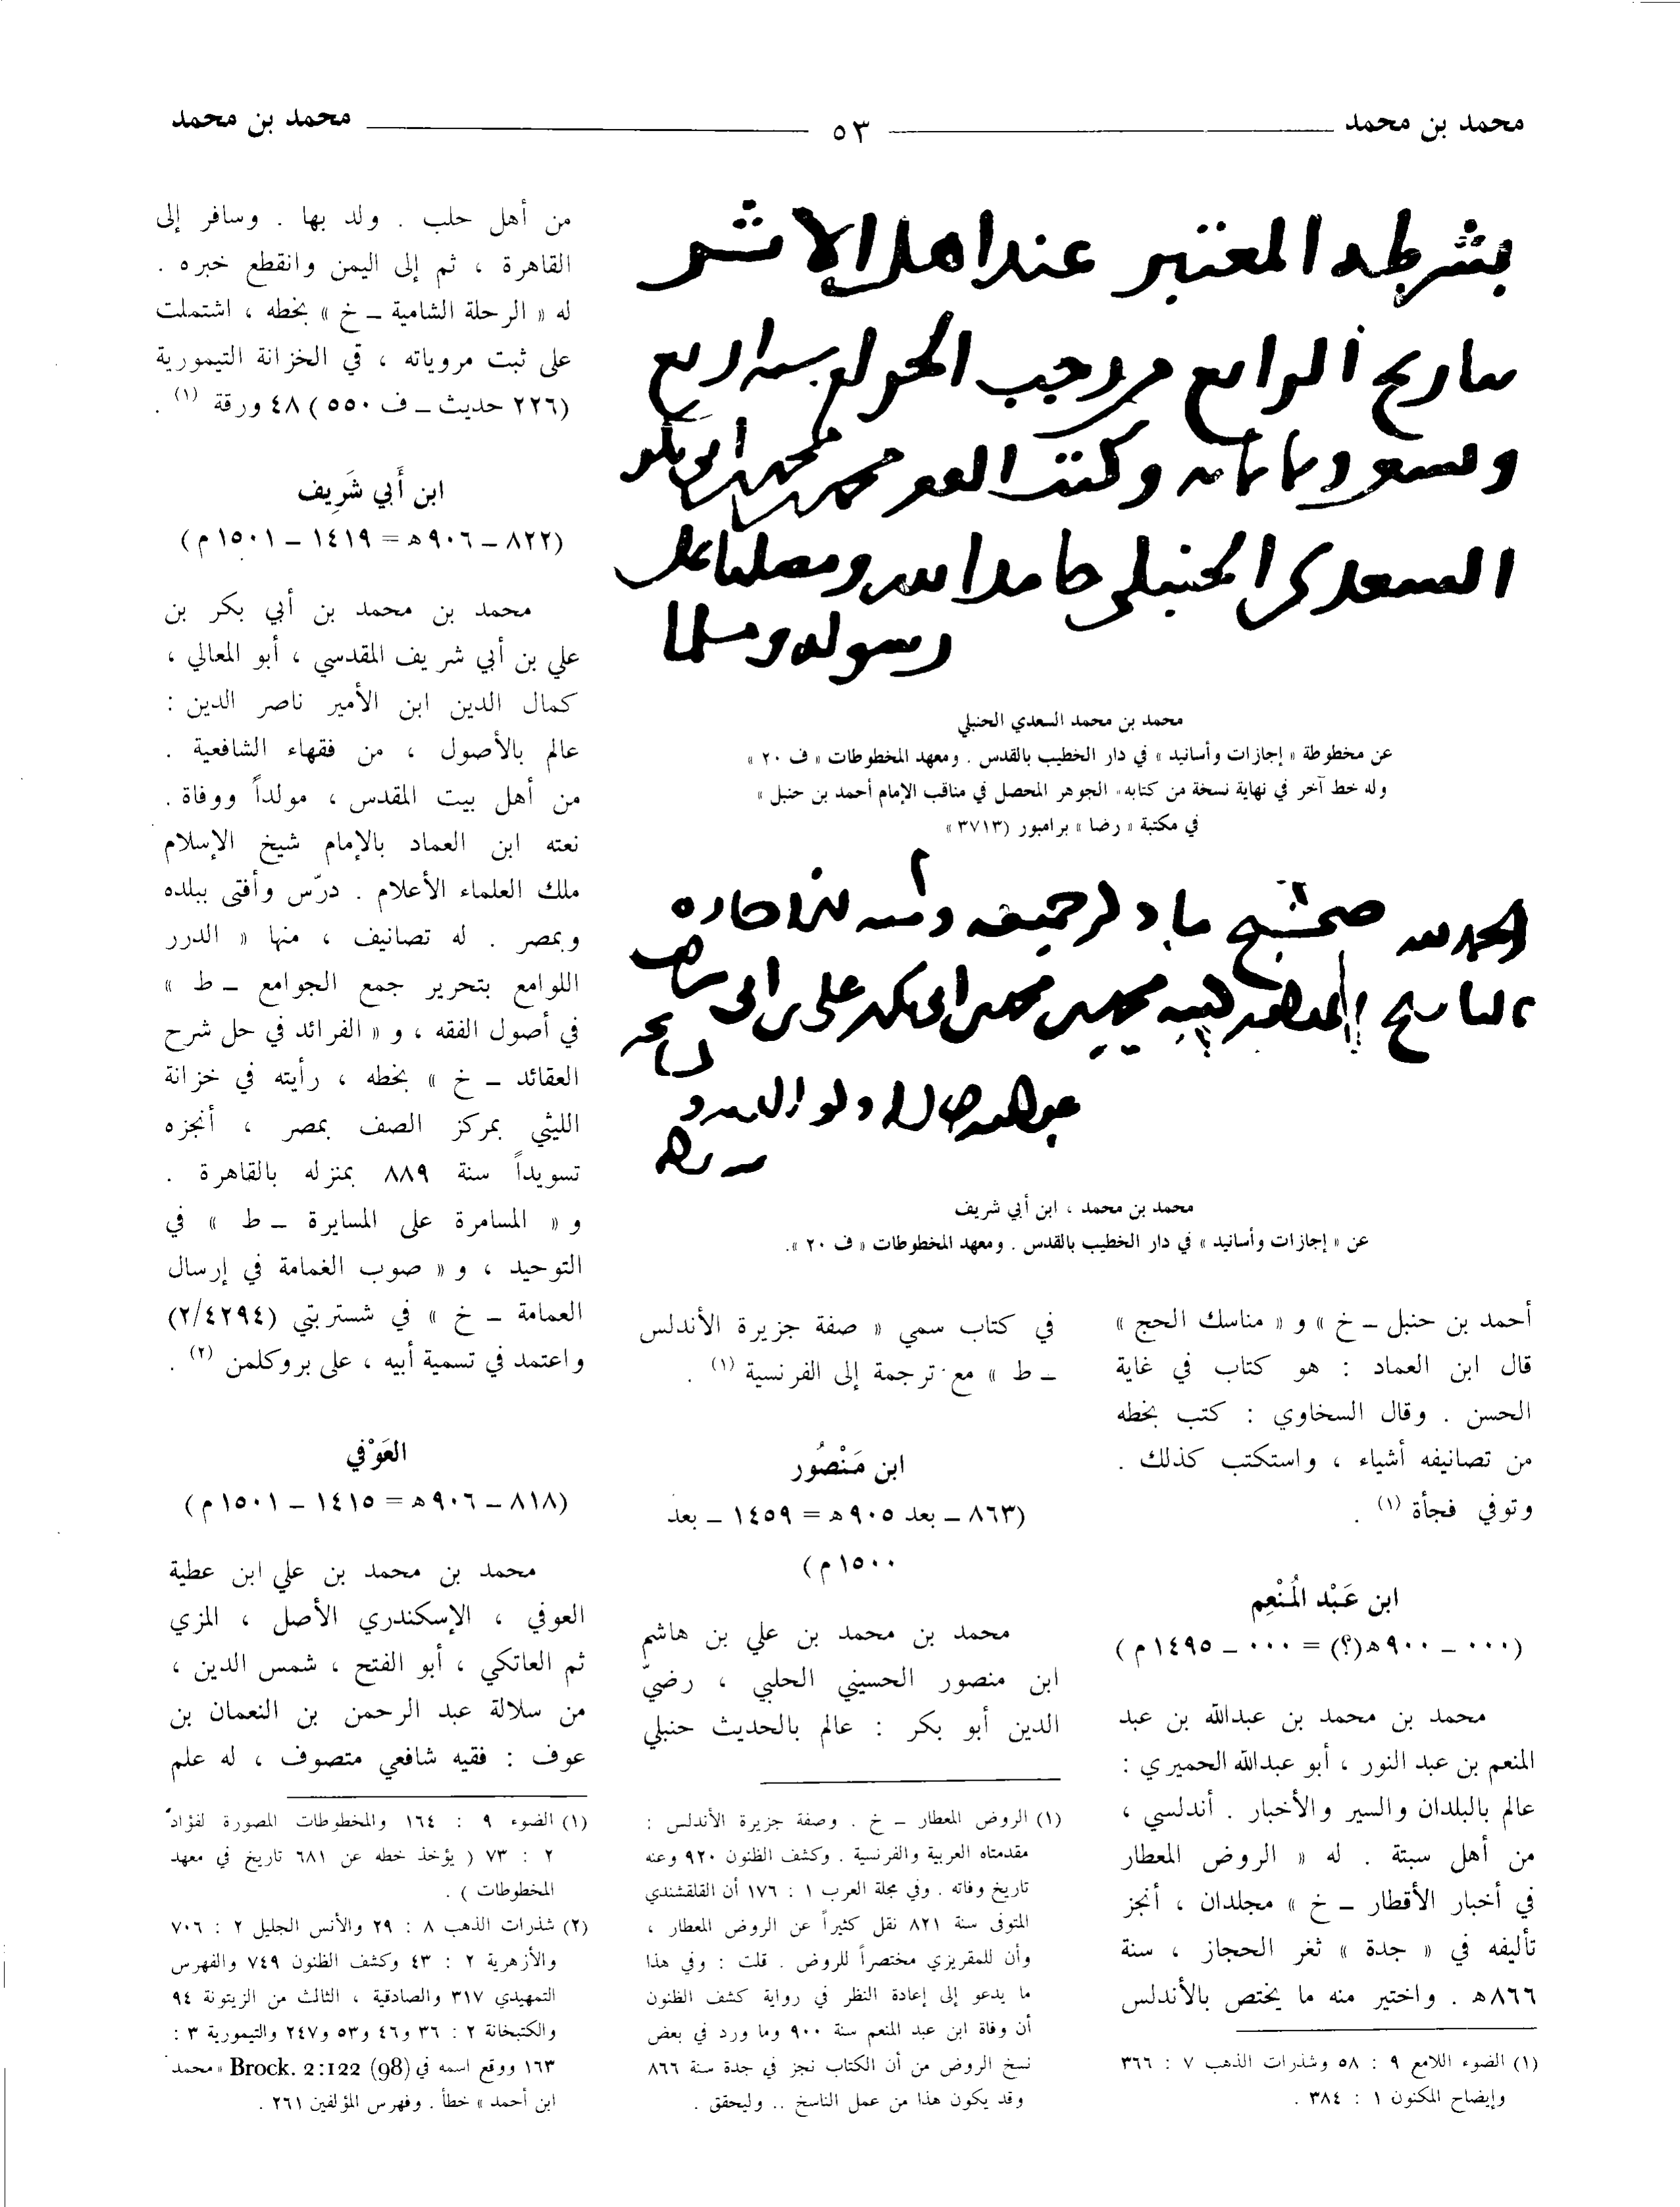 محمد بن محمد
٥٣
محمد بن محمد
بشرطه المعتبر عند اهل الاثر
الرابع رجب
وكتب محمد محمد ابي بكر
السعدي الحنبلي حامدا لله ومصليا على
رسوله ومسلما
محمد بن محمد السعدي الحنبلي
عن مخطوطة « إجازات وأسانيد » في دار الخطيب بالقدس . ومعهد المخطوطات « ف ٢٠ »
وله خط آخر في نهاية نسخة من كتابه « الجوهر المحصل في مناقب الإمام أحمد بن حنبل »
في مكتبة « رضا » برامبور (٣٧١٣ »
الحمد لله صحيح
محمد محمد ابي بكر علي ابي شريف
محمد بن محمد ، ابن أبي شريف
عن « إجازات وأسانيد » في دار الخطيب بالقدس . ومعهد المخطوطات « ف ٢٠ ».
أحمد بن حنبل ــ خ » و « مناسك الحج »
قال ابن العماد : هو كتاب في غاية
الحسن . وقال السخاوي : كتب بخطه
من تصانيفه أشياء ، واستكتب كذلك .
وتوفي فجأة (١) .
ابن عَبْد المُنْعِم
(٠٠٠ ــ ٩٠٠ هـ(؟) = ٠٠٠ ــ ١٤٩٥ م)
محمد بن محمد بن عبدالله بن عبد
المنعم بن عبد النور ، أبو عبدالله الحميري :
عالم بالبلدان والسير والأخبار . أندلسي ،
من أهل سبتة . له « الروض المعطار
في أخبار الأقطار ــ خ » مجلدان ، أنجز
تأليفه في « جدة » ثغر الحجاز ، سنة
٨٦٦ هـ . واختير منه ما يختص بالأندلس
(١) الضوء اللامع ٩ : ٥٨ وشذرات الذهب ٧ : ٣٦٦
وإيضاح المكنون ١ : ٣٨٤ .
في كتاب سمي « صفة جزيرة الأندلس
ــ ط » مع ترجمة إلى الفرنسية (١) .
ابن مَنْصُور
(٨٦٣ ــ بعد ٩٠٥ هـ = ١٤٥٩ ــ بعد
١٥٠٠ م)
محمد بن محمد بن علي بن هاشم
ابن منصور الحسيني الحلبي ، رضيّ
الدين أبو بكر : عالم بالحديث حنبلي
(١) الروض المعطار ــ خ . وصفة جزيرة الأندلس :
مقدمتاه العربية والفرنسية . وكشف الظنون ٩٢٠ وعنه
تاريخ وفاته . وفي مجلة العرب ١ : ١٧٦ أن القلقشندي
المتوفى سنة ٨٢١ نقل كثيراً عن الروض المعطار ،
وأن للمقريزي مختصراً للروض . قلت : وفي هذا
ما يدعو إلى إعادة النظر في رواية كشف الظنون
أن وفاة ابن عبد المنعم سنة ٩٠٠ وما ورد في بعض
نسخ الروض من أن الكتاب نجز في جدة سنة ٨٦٦
وقد يكون هذا من عمل الناسخ .. وليحقق .
من أهل حلب . ولد بها . وسافر إلى
القاهرة ، ثم إلى اليمن وانقطع خبره .
له « الرحلة الشامية ــ خ » بخطه ، اشتملت
على ثبت مروياته ، في الخزانة التيمورية
(٢٢٦ حديث ــ ف ٥٥٠) ٤٨ ورقة (١) .
ابن أَبي شَرِيف
(٨٢٢ ــ ٩٠٦ هـ = ١٤١٩ ــ ١٥٠١ م)
محمد بن محمد بن أبي بكر بن
علي بن أبي شريف المقدسي ، أبو المعالي ،
كمال الدين ابن الأمير ناصر الدين :
عالم بالأصول ، من فقهاء الشافعية .
من أهل بيت المقدس ، مولداً ووفاة .
نعته ابن العماد بالإمام شيخ الإسلام
ملك العلماء الأعلام . درّس وأفتى ببلده
وبمصر . له تصانيف ، منها « الدرر
اللوامع بتحرير جمع الجوامع ــ ط »
في أصول الفقه ، و « الفرائد في حل شرح
العقائد ــ خ » بخطه ، رأيته في خزانة
الليثي بمركز الصف بمصر ، أنجزه
تسويداً سنة ٨٨٩ بمنزله بالقاهرة .
و « المسامرة على المسايرة ــ ط » في
التوحيد ، و « صوب الغمامة في إرسال
العمامة ــ خ » في شستربتي (٢/٤٢٩٤)
واعتمد في تسمية أبيه ، على بروكلمن (٢) .
العَوْفي
(٨١٨ ــ ٩٠٦ هـ = ١٤١٥ ــ ١٥٠١ م)
محمد بن محمد بن علي ابن عطية
العوفي ، الإسكندري الأصل ، المزي
ثم العاتكي ، أبو الفتح ، شمس الدين ،
من سلالة عبد الرحمن بن النعمان بن
عوف : فقيه شافعي متصوف ، له علم
(١) الضوء ٩ : ١٦٤ والمخطوطات المصورة لفؤاد
٢ : ٧٣ ( يؤخذ خطه عن ٦٨١ تاريخ في معهد
المخطوطات ) .
(٢) شذرات الذهب ٨ : ٢٩ والأنس الجليل ٢ : ٧٠٦
والأزهرية ٢ : ٤٣ وكشف الظنون ٧٤٩ والفهرس
التمهيدي ٣١٧ والصادقية ، الثالث من الزيتونة ٩٤
والكتبخانة ٢ : ٣٦ و٤٦ و٥٣ و٢٤٧ والتيمورية ٣ :
١٦٣ ووقع اسمه في Brock. 2:122 (98) « محمد
ابن أحمد » خطأ . وفهرس المؤلفين ٢٦١ .